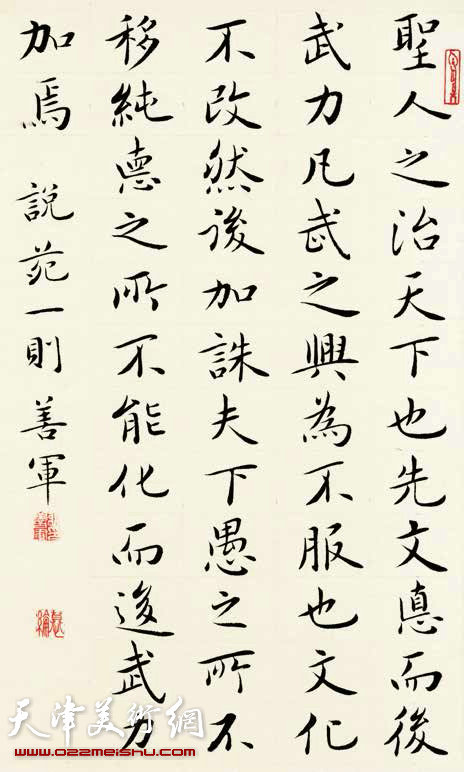 聖人之治天下也先文悳而後
武力凡武之興為不服也文化
不改然後加誅夫下愚之所不
移純悳之所不能化而後武力
加焉　說苑一則　善軍
天津美術網
www.022meishu.com